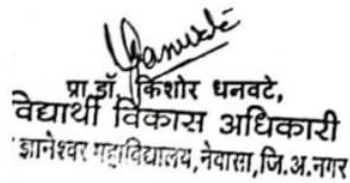 प्रा.डॉ. किशोर धनवटे,
विद्यार्थी विकास अधिकारी
ज्ञानेश्वर महाविद्यालय,नेवासा,जि.अ.नगर